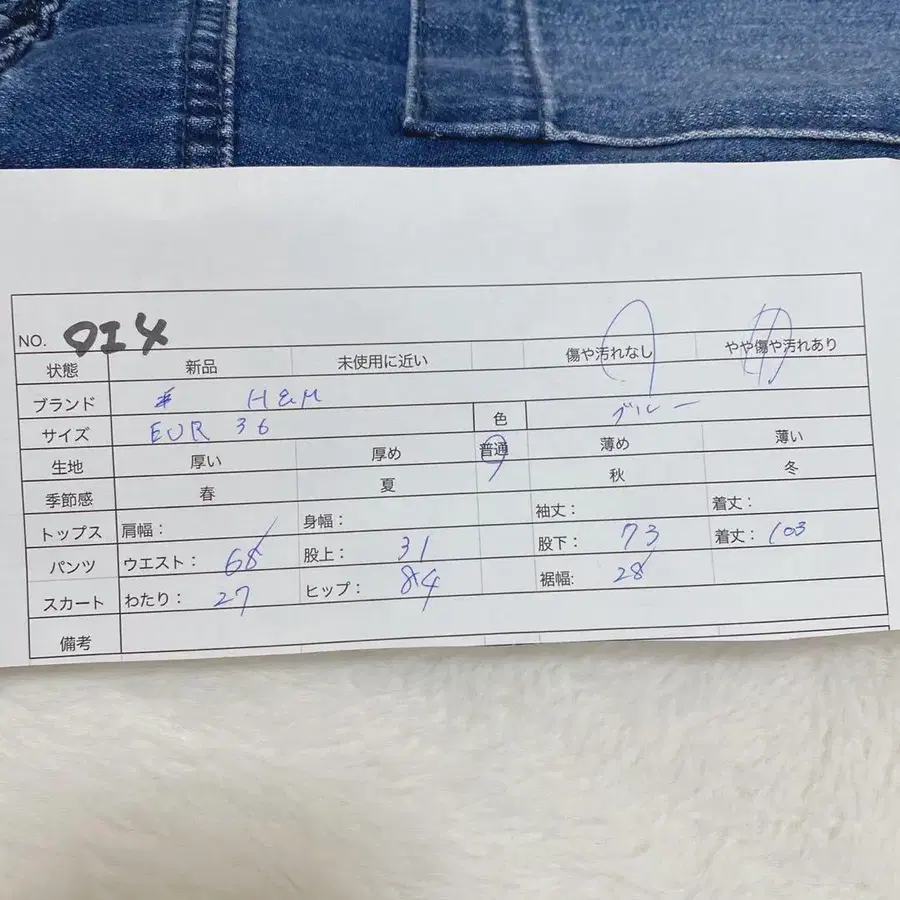 NO. 014
状態 新品 未使用に近い 傷や汚れなし やや傷や汚れあり
ブランド H&M
サイズ EUR 36 色 ブルー
生地 厚い 厚め 普通 薄め 薄い
季節感 春 夏 秋 冬
トップス 肩幅： 身幅： 袖丈： 着丈：
パンツ ウエスト： 68 股上： 31 股下： 73 着丈： 103
スカート わたり： 27 ヒップ： 84 裾幅: 28
備考